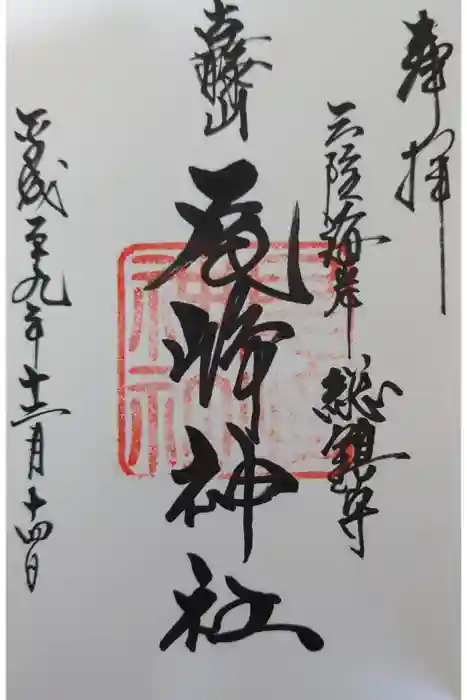 奉拝
三陸海岸 総鎮守
尾崎神社
平成廿九年十二月十四日